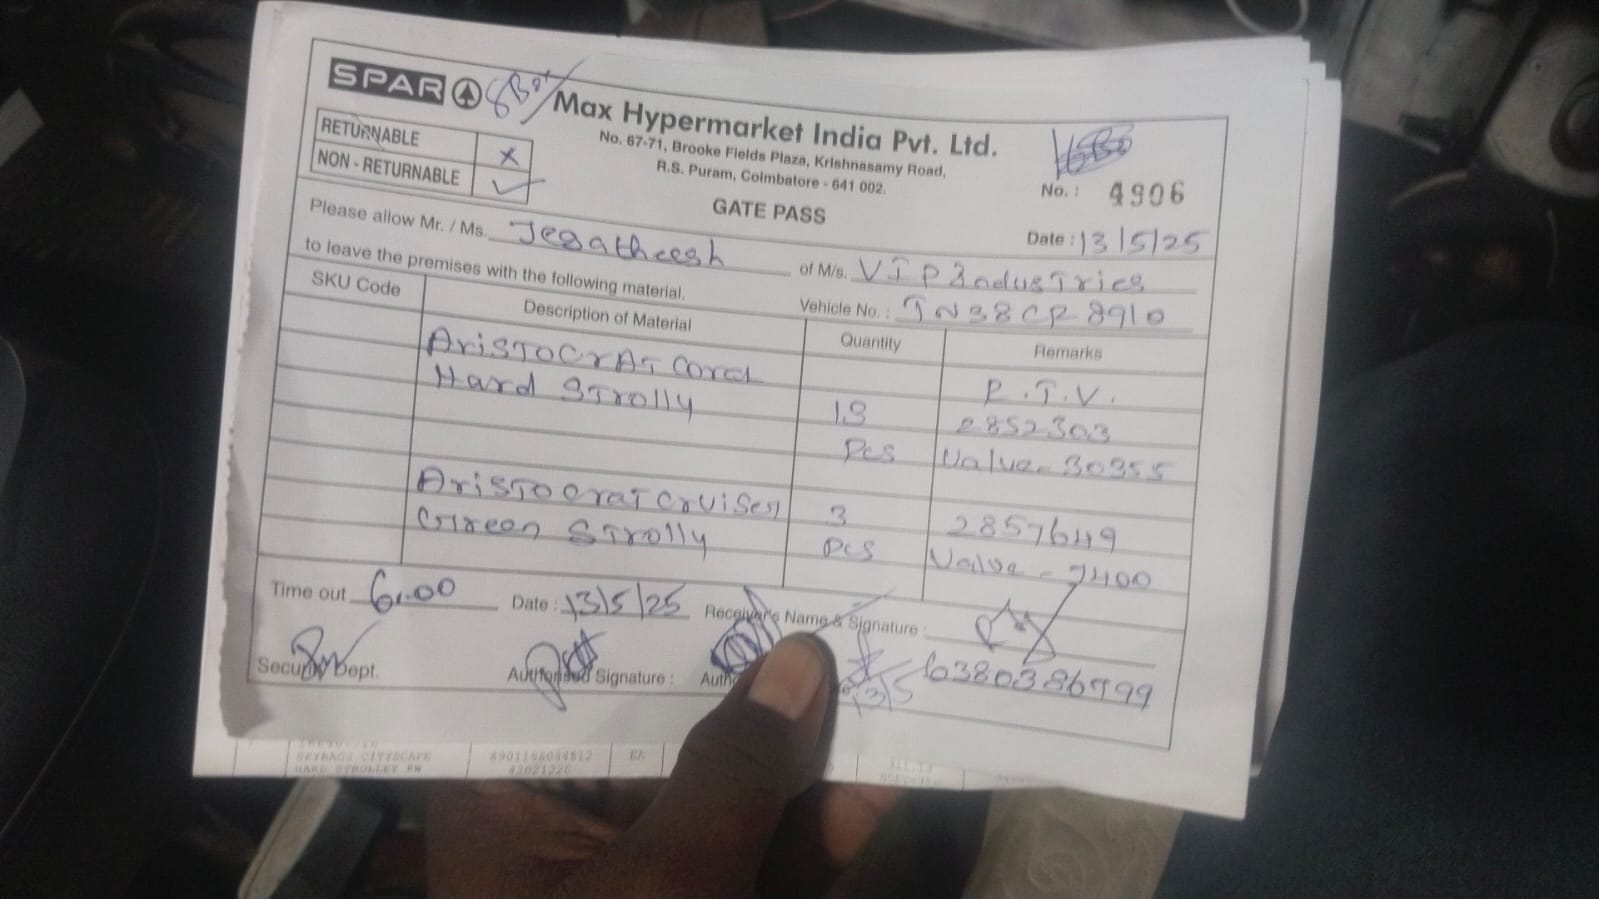 SPAR
Max Hypermarket India Pvt. Ltd.
No. 67-71, Brooke Fields Plaza, Krishnasamy Road,
R.S. Puram, Coimbatore - 641 002.
RETURNABLE ×
NON - RETURNABLE ✓
No. : 4906
GATE PASS
Date : 13/5/25
Please allow Mr. / Ms. Jegatheesh of M/s. VIP Industries
to leave the premises with the following material. Vehicle No. : TN38CR8910
SKU Code Description of Material Quantity Remarks
ARISTOCRAT Coral R.T.V.
Hard STrolly 13 2852303
Pcs Value - 30355
ArisTocraT Cruiser 3 2857649
Green STrolly Pcs Value - 7400
Time out 6.00 Date : 13/5/25 Receiver's Name & Signature :
Security Dept. Authorised Signature : 6380386999
13/5
SKYBAGS CITYSCAPE 8901188044512 EA
HARD STROLLEY 42021220